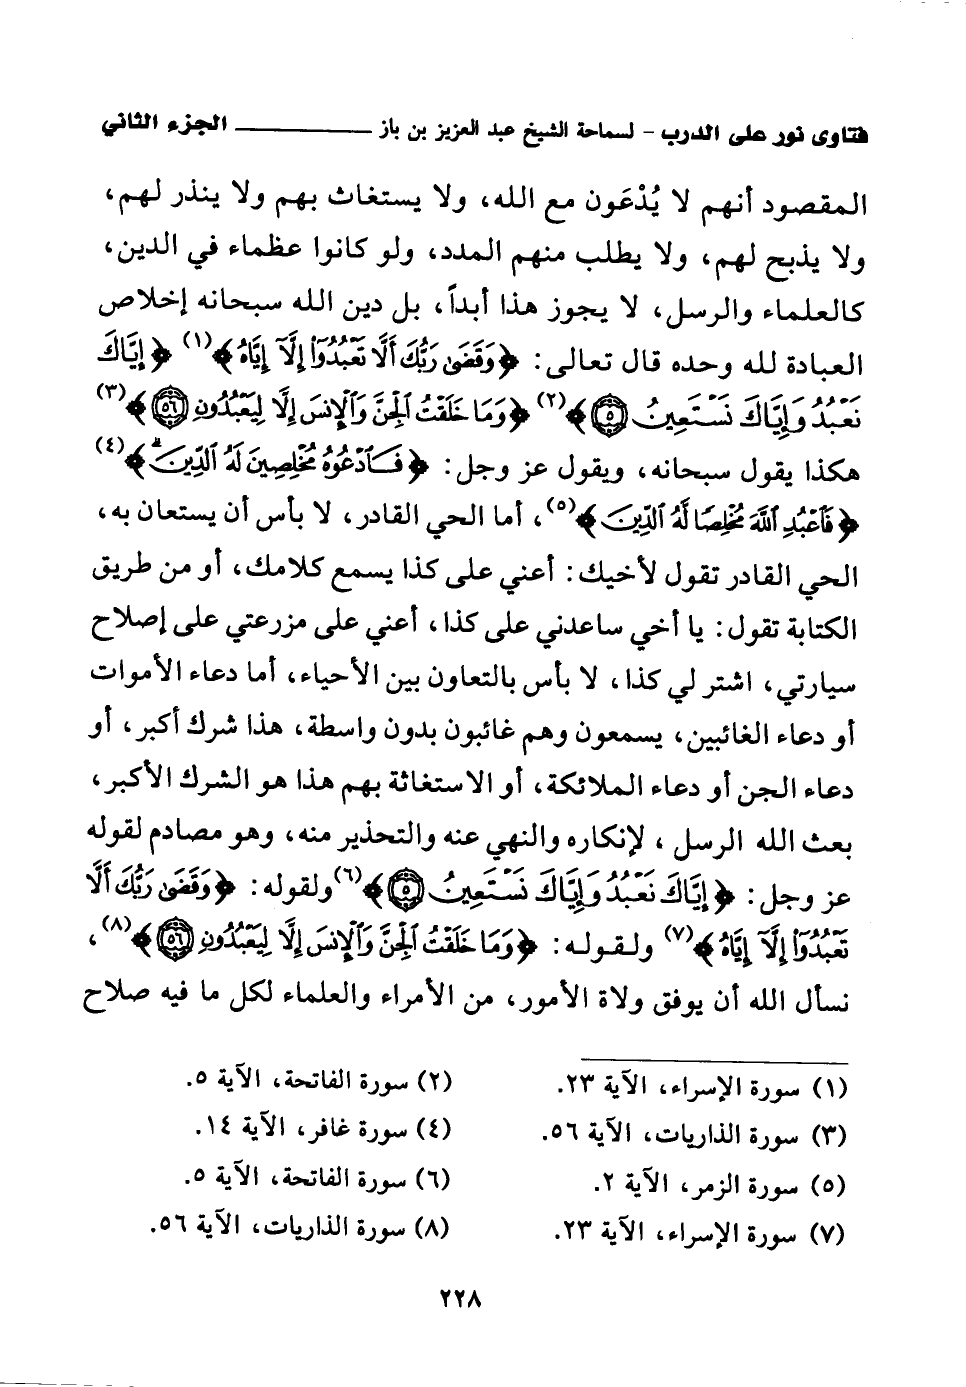 فتاوى نور على الدرب - لسماحة الشيخ عبد العزيز بن باز ـــــــــ الجزء الثاني
المقصود أنهم لا يُدْعَون مع الله، ولا يستغاث بهم ولا ينذر لهم،
ولا يذبح لهم، ولا يطلب منهم المدد، ولو كانوا عظماء في الدين،
كالعلماء والرسل، لا يجوز هذا أبداً، بل دين الله سبحانه إخلاص
العبادة لله وحده قال تعالى: ﴿وَقَضَىٰ رَبُّكَ أَلَّا تَعْبُدُوٓا۟ إِلَّآ إِيَّاهُ﴾(١) ﴿إِيَّاكَ
نَعْبُدُ وَإِيَّاكَ نَسْتَعِينُ ۝٥﴾(٢) ﴿وَمَا خَلَقْتُ ٱلْجِنَّ وَٱلْإِنسَ إِلَّا لِيَعْبُدُونِ ۝٥٦﴾(٣)
هكذا يقول سبحانه، ويقول عز وجل: ﴿فَٱدْعُوهُ مُخْلِصِينَ لَهُ ٱلدِّينَ ۗ﴾(٤)
﴿فَٱعْبُدِ ٱللَّهَ مُخْلِصًا لَّهُ ٱلدِّينَ﴾(٥)، أما الحي القادر، لا بأس أن يستعان به،
الحي القادر تقول لأخيك: أعني على كذا يسمع كلامك، أو من طريق
الكتابة تقول: يا أخي ساعدني على كذا، أعني على مزرعتي على إصلاح
سيارتي، اشتر لي كذا، لا بأس بالتعاون بين الأحياء، أما دعاء الأموات
أو دعاء الغائبين، يسمعون وهم غائبون بدون واسطة، هذا شرك أكبر، أو
دعاء الجن أو دعاء الملائكة، أو الاستغاثة بهم هذا هو الشرك الأكبر،
بعث الله الرسل ، لإنكاره والنهي عنه والتحذير منه، وهو مصادم لقوله
عز وجل: ﴿إِيَّاكَ نَعْبُدُ وَإِيَّاكَ نَسْتَعِينُ ۝٥﴾(٦) ولقوله: ﴿وَقَضَىٰ رَبُّكَ أَلَّا
تَعْبُدُوٓا۟ إِلَّآ إِيَّاهُ﴾(٧) ولقوله: ﴿وَمَا خَلَقْتُ ٱلْجِنَّ وَٱلْإِنسَ إِلَّا لِيَعْبُدُونِ ۝٥٦﴾(٨)،
نسأل الله أن يوفق ولاة الأمور، من الأمراء والعلماء لكل ما فيه صلاح
(١) سورة الإسراء، الآية ٢٣. (٢) سورة الفاتحة، الآية ٥.
(٣) سورة الذاريات، الآية ٥٦. (٤) سورة غافر، الآية ١٤.
(٥) سورة الزمر، الآية ٢. (٦) سورة الفاتحة، الآية ٥.
(٧) سورة الإسراء، الآية ٢٣. (٨) سورة الذاريات، الآية ٥٦.
٢٢٨